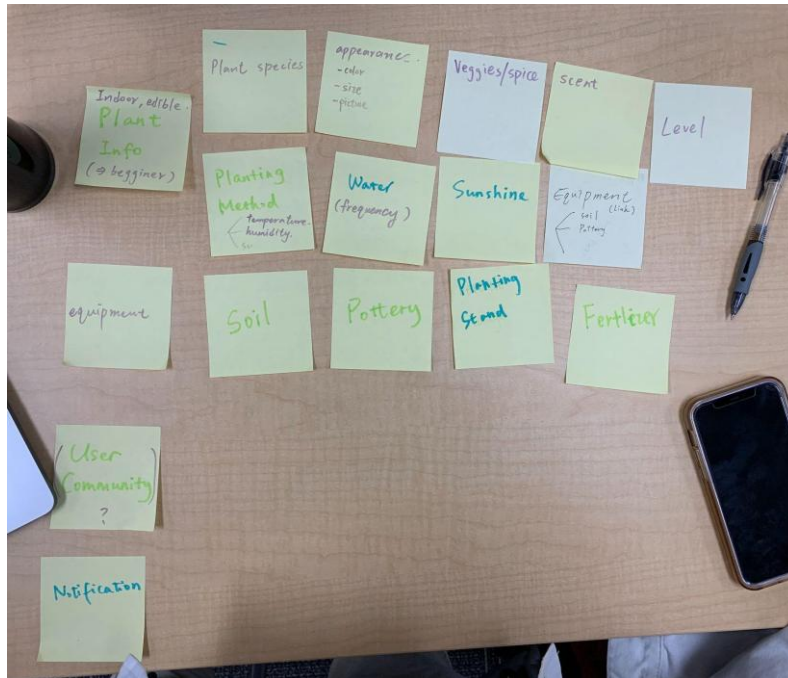 Indoor, edible.
Plant
Info
(⇒ begginer)
Plant species
appearance.
- color
- size
- picture
Veggies/spice
scent
Level
Planting
Method
temperature.
humidity.
Water
(frequency)
Sunshine
Equipment
(link)
soil
Pottery
equipment
Soil
Pottery
Planting
Stand
Fertlizer
(User
Community)
?
Notification